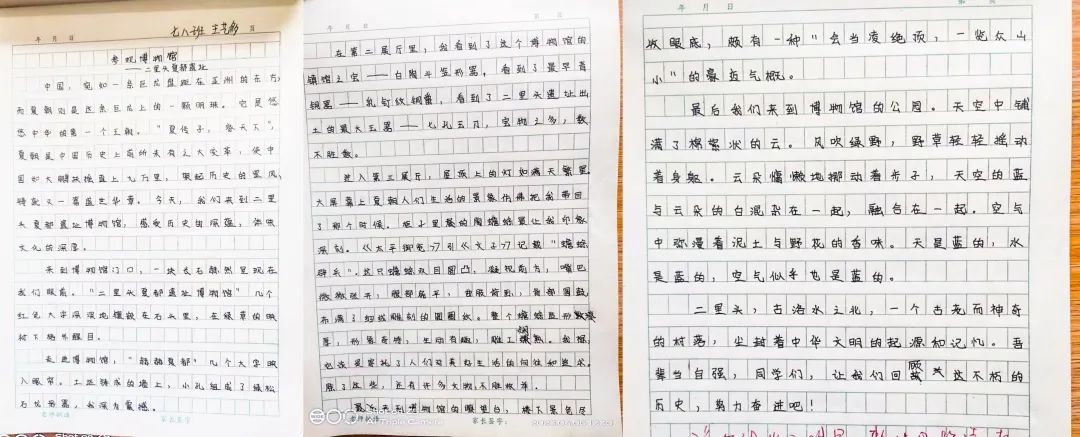 年 月 日
七八班
参观博物馆
——二里头夏都遗址
中国，宛如一条巨龙盘踞在亚洲的东方，
而夏朝则是这条巨龙上的一颗明珠。它是悠
悠中华的第一个王朝。“夏传子，家天下”，
夏朝是中国历史上前所未有之大变革，使中
国如大鹏扶摇直上九万里，聚起历史的罡风，
铸就又一喜盛世华章。今天，我们来到二里
头夏都遗址博物馆，感受历史由深蕴，体味
文化的深厚。
来到博物馆门口，一块大石赫然呈现在
我们眼前。“二里头夏都遗址博物馆”几个
红色大字深深地镶嵌在石头里，在绿草的映
衬下格外醒目。
走进博物馆，“赫赫夏都”几个大字映
入眼帘。土坯铸成的墙上，小孔组成了绿松
石龙形器，我深为震撼。
老师批语 家长签字
年 月 日 第 页
在第二展厅里，我看到了这个博物馆的
镇馆之宝——白陶斗笠形器，看到了最早青
铜器——乳钉纹铜爵，看到了二里头遗址出
土的最大玉器——七孔玉刀，宝物之多，数
不胜数。
进入第三展厅，屋顶上的灯如满天繁星，
大屏幕上夏朝人们生活的景象仿佛把我带回
了那个时候。柜子里展的陶蟾蜍最让我印象
深刻。《太平御览》引《文子》记载“蟾蜍
辟兵”。这只蟾蜍双目圆凸，凝视前方，嘴巴
微微张开，腹部扁平，曲肢前爬，背部圆鼓，
布满了细致雕刻的圆圈纹。整个蟾蜍造形敦
厚，形象奇特，生动有趣，雕工娴熟。我想，
也许是寄托了人们对美好生活的向往和追求。
除了这些，还有许多文物不胜枚举。
最后来到博物馆的眺望台，楼下景色尽
老师批语 家长签字：
年 月 日 第 页
收眼底，颇有一种“会当凌绝顶，一览众山
小”的豪迈气概。
最后我们来到博物馆的公园。天空中铺
满了棉絮状的云。风吹绿野，野草轻轻摇动
着身躯。云朵慵懒地挪动着步子，天空的蓝
与云朵的白混杂在一起，融合在一起。空气
中弥漫着泥土与野花的香味。天是蓝的，水
是蓝的，空气似乎也是蓝的。
二里头，古洛水之北，一个古老而神奇
的村落，尘封着中华文明的起源和记忆。吾
辈当自强，同学们，让我们回顾这不朽的
历史，努力奋进吧！